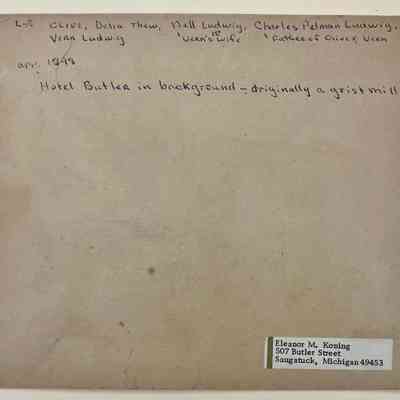 L-R Clive, Delia Thew, Nell Ludwig, Charles Pelman Ludwig,
Vern Ludwig 'Vern's 1st Wife' 'Father of Clive & Vern
apr. 1898
Hotel Butler in background – originally a grist mill
Eleanor M. Koning
507 Butler Street
Saugatuck, Michigan 49453